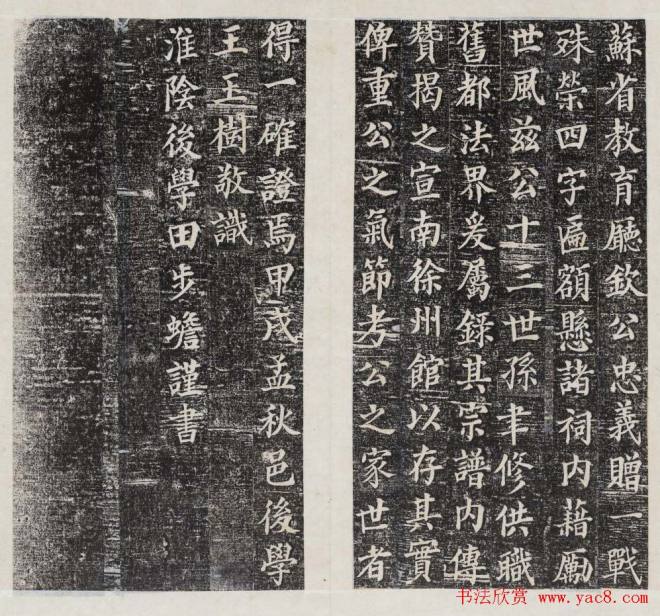 蘇省教育廳欽公忠義贈一戰
殊榮四字匾額懸諸祠内藉勵
世風兹公十三世孫聿修供職
舊都法界爰屬録其宗譜内傳
贊揭之宣南徐州館以存其實
俾重公之氣節考公之家世者
得一確證焉甲戌孟秋邑後學
王玉樹敬識
淮陰後學田步蟾謹書
书法欣赏 www.yac8.com